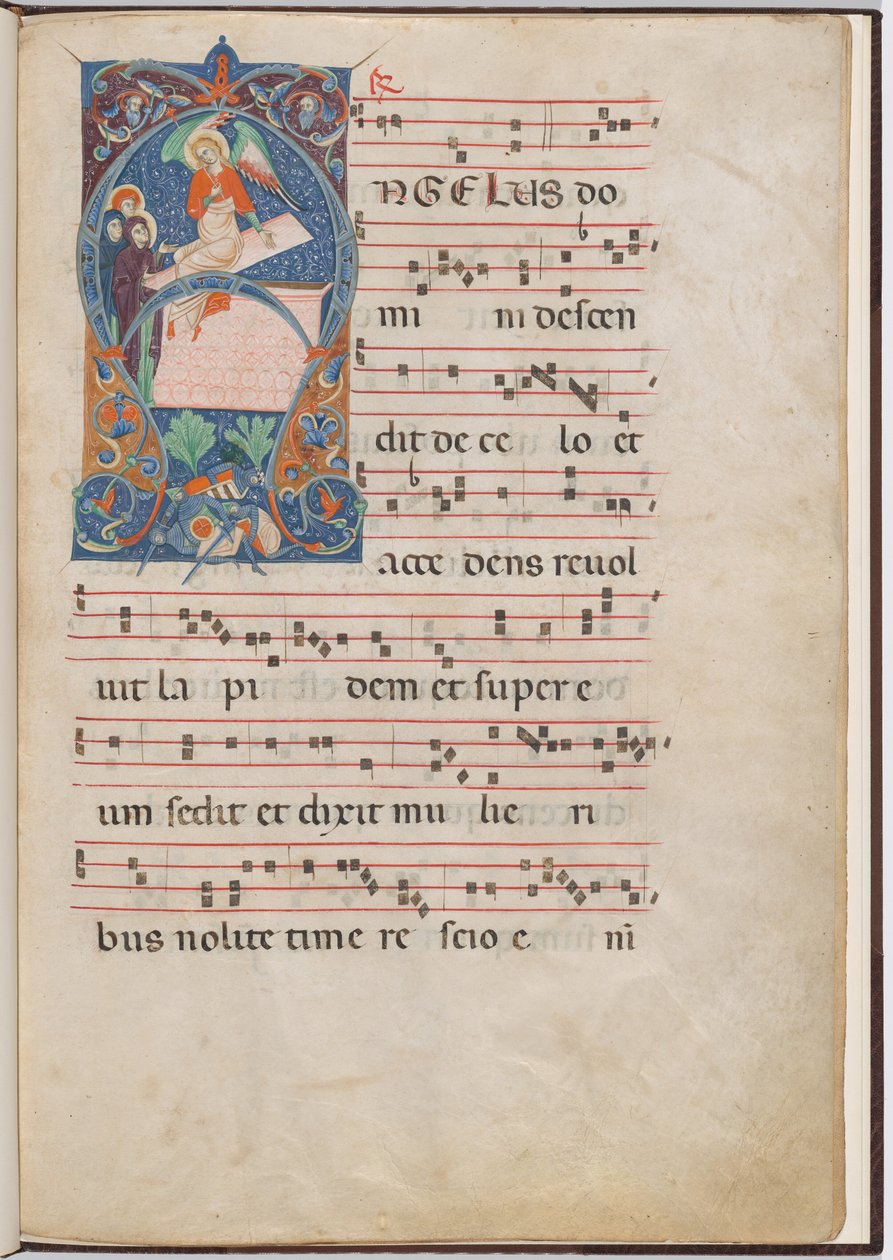 ℟
ANGELUS do
mi ni descen
dit de ce lo et
acce dens revol
vit la pi dem et super e
um sedit et dixit mu lie ri
bus nolite time re scio e ni̅